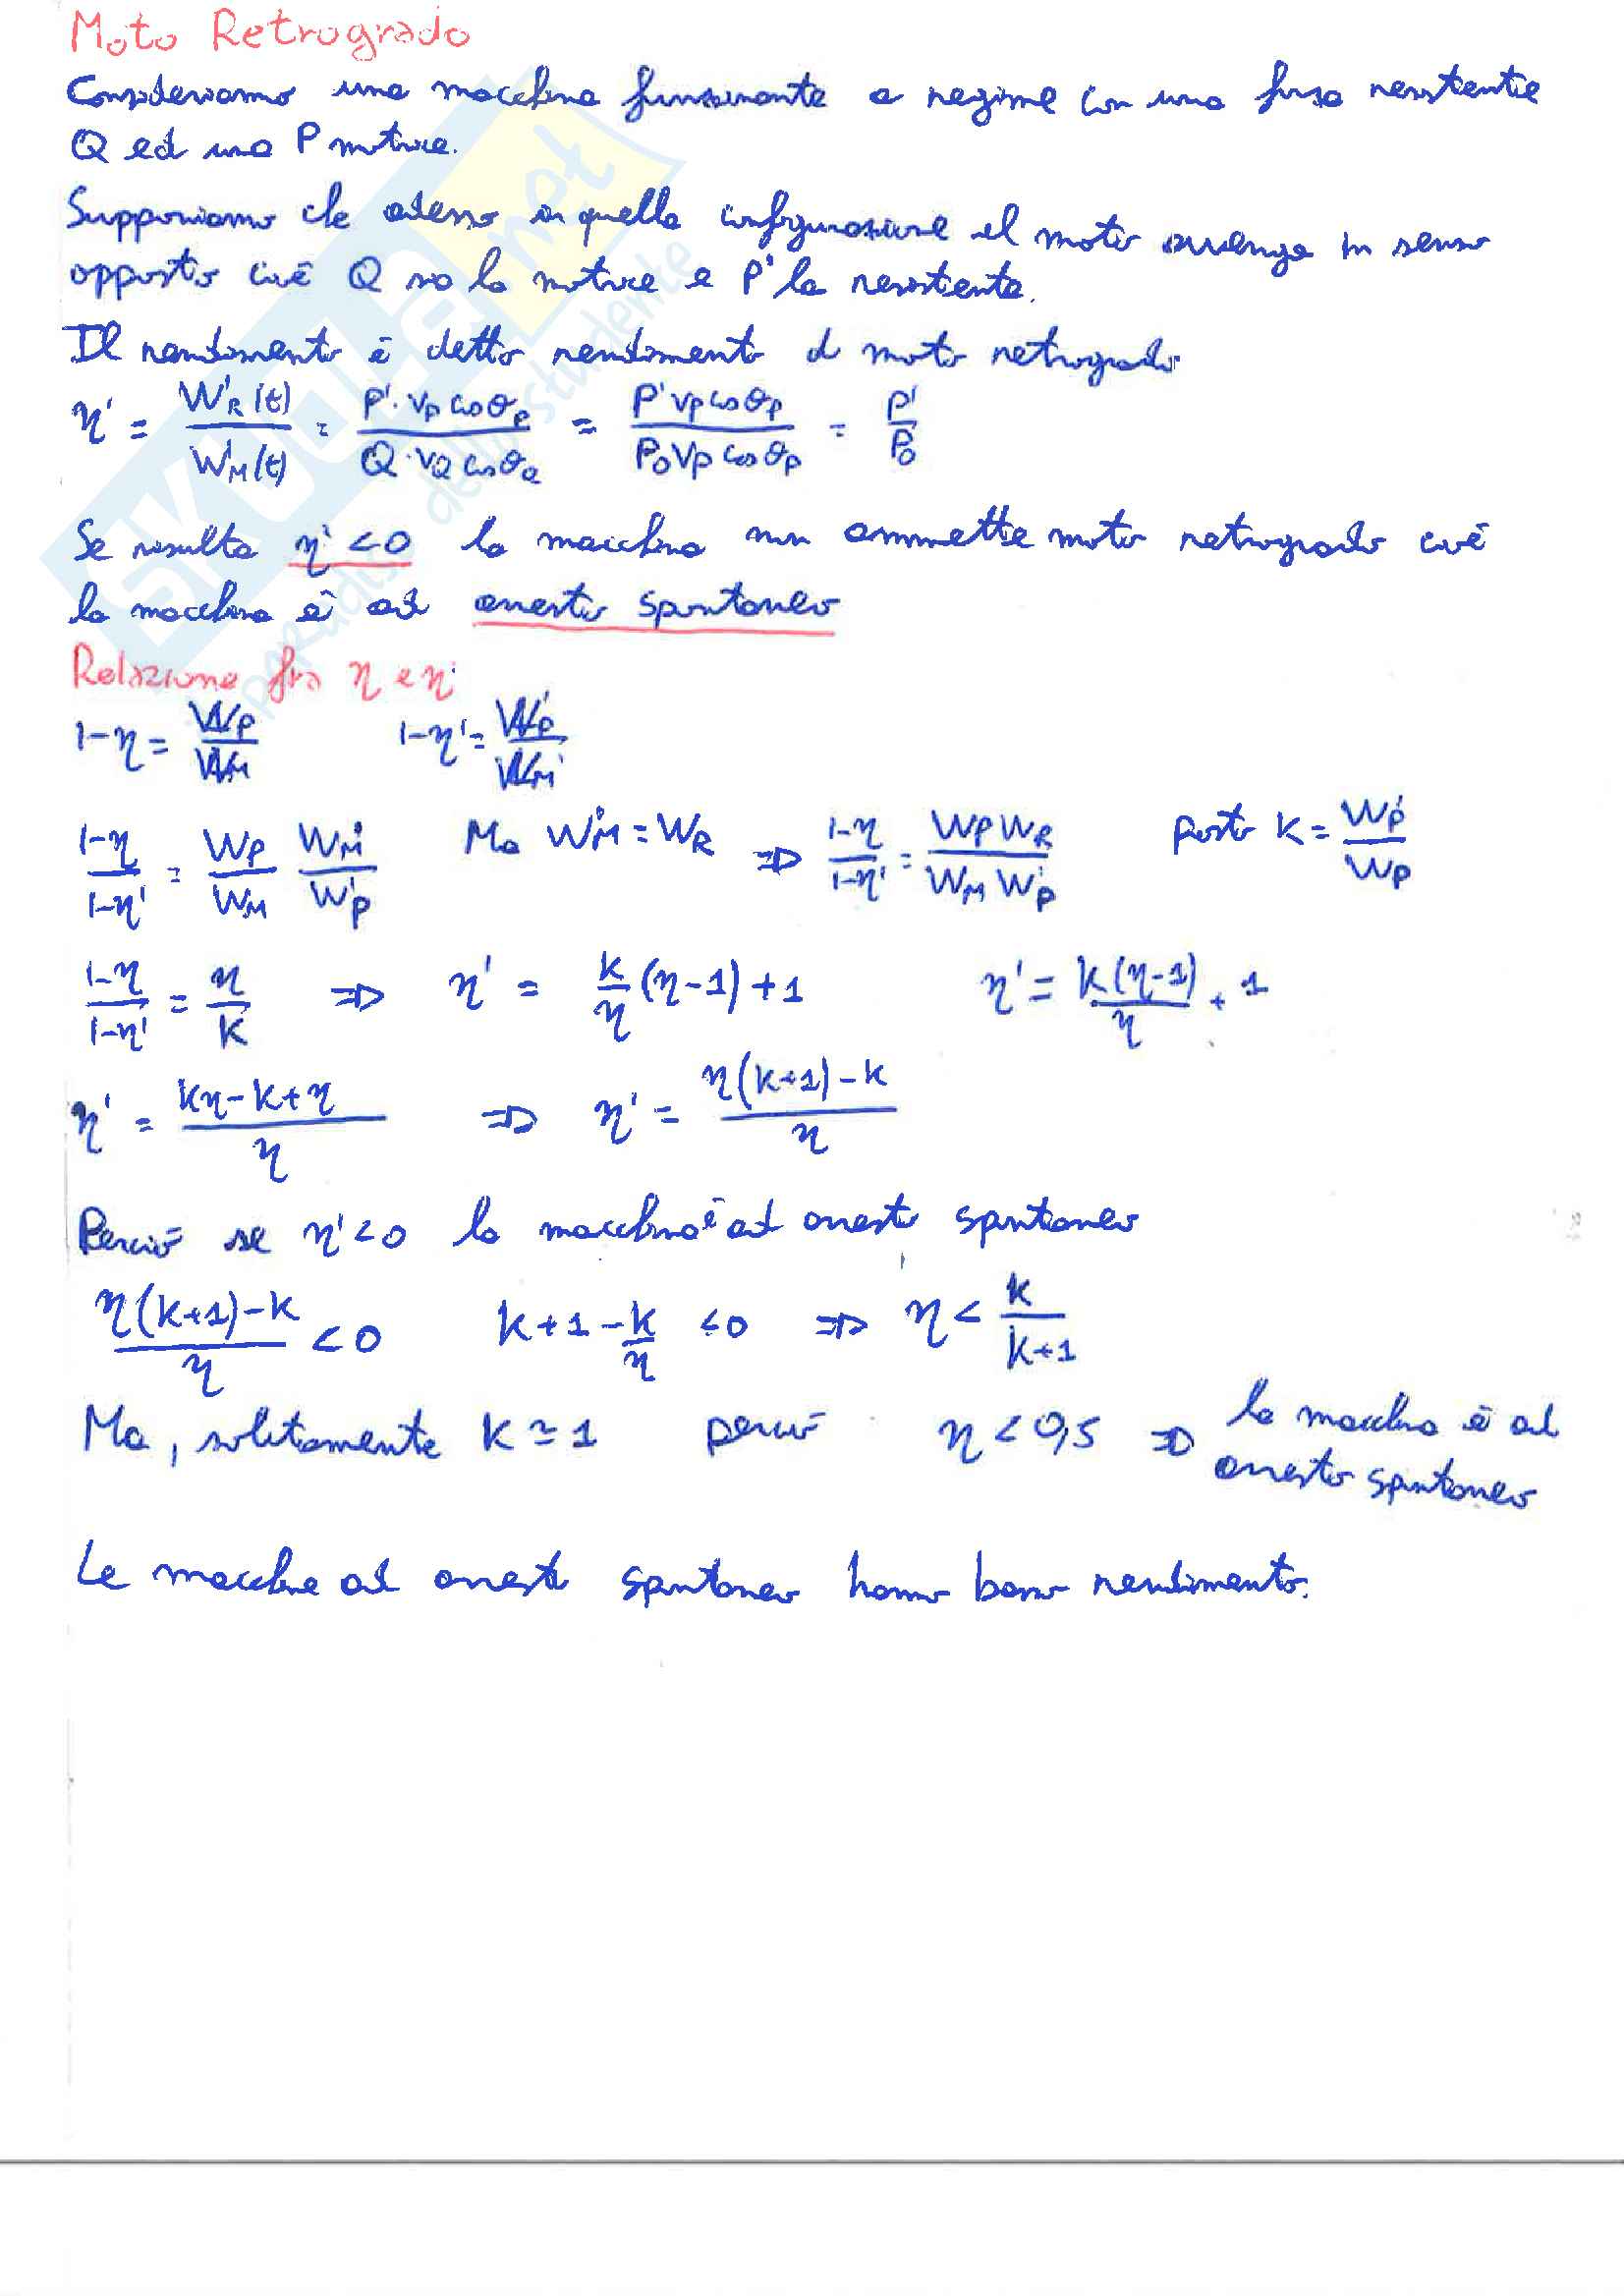 Moto Retrogrado
Consideriamo una macchina funzionante a regime con una forza resistente
Q ed una P motrice.
Supponiamo che adesso in quella configurazione il moto avvenga in senso
opposto cioè Q sia la motrice e P' la resistente.
Il rendimento è detto rendimento di moto retrogrado
η' = W'R(t)/W'M(t) = P'·vP cosθP/Q·vQ cosθQ = P'vP cosθP/P0vP cosθP = P'/P0
Se risulta η' < 0 la macchina non ammette moto retrogrado cioè
la macchina è ad arresto spontaneo
Relazione fra η e η'
1-η = WP/WM 1-η' = W'P/W'M
1-η/1-η' = WP/WM W'M/W'P Ma W'M = WR ⇒ 1-η/1-η' = WP WR/WM W'P posto K = W'P/WP
1-η/1-η' = η/K ⇒ η' = K/η (η-1)+1 η' = K(η-1)/η + 1
η' = Kη-K+η/η ⇒ η' = η(K+1)-K/η
Perciò se η'<0 la macchina è ad arresto spontaneo
η(K+1)-K/η < 0 K+1-K/η <0 ⇒ η < K/K+1
Ma, solitamente K ≃ 1 perciò η < 0,5 ⇒ la macchina è ad
arresto spontaneo
Le macchine ad arresto spontaneo hanno basso rendimento.
SKUOLA.net
paradiso dello studente